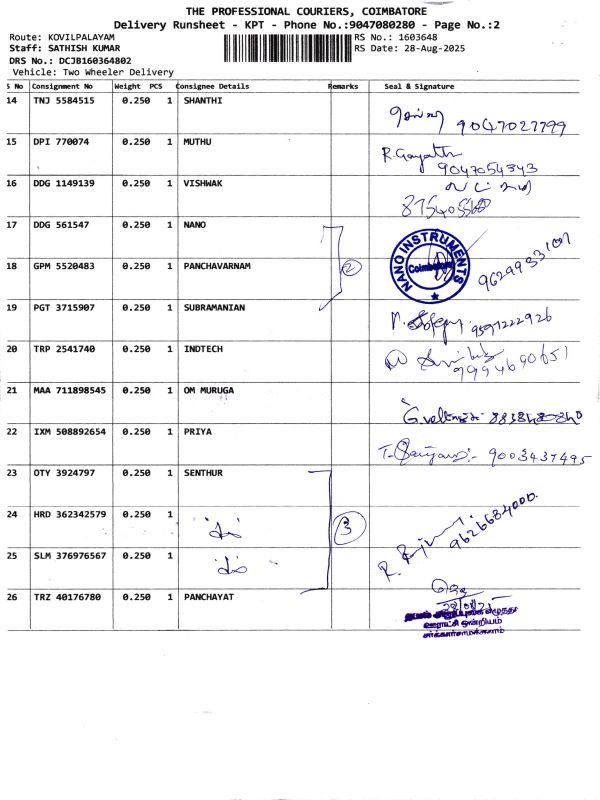 THE PROFESSIONAL COURIERS, COIMBATORE
Delivery Runsheet - KPT - Phone No.:9047080280 - Page No.:2
Route: KOVILPALAYAM RS No.: 1603648
Staff: SATHISH KUMAR RS Date: 28-Aug-2025
DRS No.: DCJB160364802
Vehicle: Two Wheeler Delivery
S No Consignment No Weight PCS Consignee Details Remarks Seal & Signature
14 TNJ 5584515 0.250 1 SHANTHI
9047027799
15 DPI 770074 0.250 1 MUTHU R.Gayath
9047054343
16 DDG 1149139 0.250 1 VISHWAK
17 DDG 561547 0.250 1 NANO
NANO INSTRUMENTS
Coimbatore
18 GPM 5520483 0.250 1 PANCHAVARNAM 2
19 PGT 3715907 0.250 1 SUBRAMANIAN
9597222926
20 TRP 2541740 0.250 1 INDTECH
9994690651
21 MAA 711898545 0.250 1 OM MURUGA
22 IXM 508892654 0.250 1 PRIYA
9003437495
23 OTY 3924797 0.250 1 SENTHUR
24 HRD 362342579 0.250 1 3
9626684000
25 SLM 376976567 0.250 1
26 TRZ 40176780 0.250 1 PANCHAYAT
ஊராட்சி ஒன்றியம்